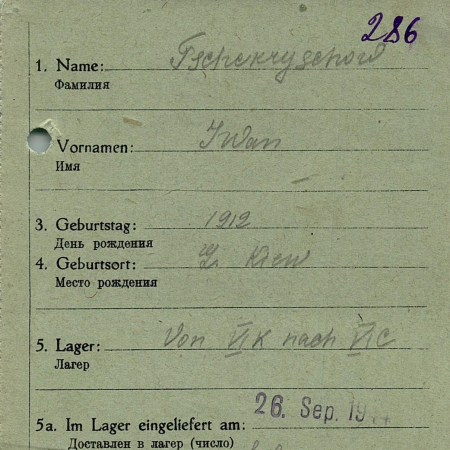 286
1. Name: Tschernyschow
Фамилия
Vornamen: Iwan
Имя
3. Geburtstag: 1912
День рождения
4. Geburtsort: G. Kiew
Место рождения
5. Lager: Von VI K nach VI C
Лагер
5a. Im Lager eingeliefert am: 26. Sep. 19
Доставлен в лагер (число)